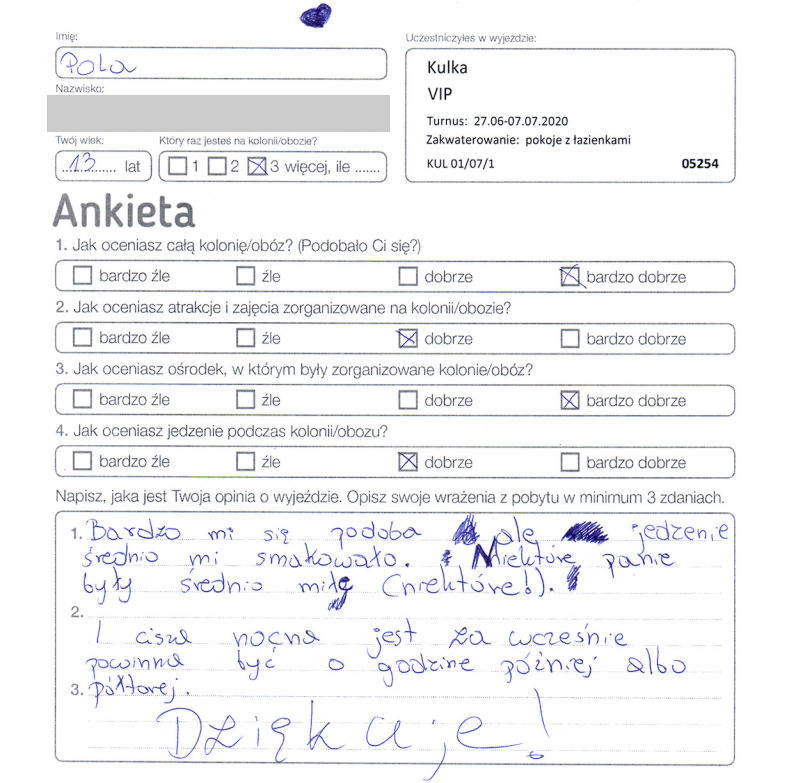 Imię:
Pola
Nazwisko:
Twój wiek:
13 lat
Który raz jesteś na kolonii/obozie?
1 2 3 więcej, ile .......
Uczestniczyłeś w wyjeździe:
Kulka
VIP
Turnus: 27.06-07.07.2020
Zakwaterowanie: pokoje z łazienkami
KUL 01/07/1 05254
Ankieta
1. Jak oceniasz całą kolonię/obóz? (Podobało Ci się?)
bardzo źle źle dobrze bardzo dobrze
2. Jak oceniasz atrakcje i zajęcia zorganizowane na kolonii/obozie?
bardzo źle źle dobrze bardzo dobrze
3. Jak oceniasz ośrodek, w którym były zorganizowane kolonie/obóz?
bardzo źle źle dobrze bardzo dobrze
4. Jak oceniasz jedzenie podczas kolonii/obozu?
bardzo źle źle dobrze bardzo dobrze
Napisz, jaka jest Twoja opinia o wyjeździe. Opisz swoje wrażenia z pobytu w minimum 3 zdaniach.
1. Bardzo mi się podoba ale jedzenie
średnio mi smakowało. Niektóre panie
były średnio miłe (niektóre!).
2.
I cisza nocna jest za wcześnie
powinna być o godzine później albo
3. półtorej.
Dziękuje!